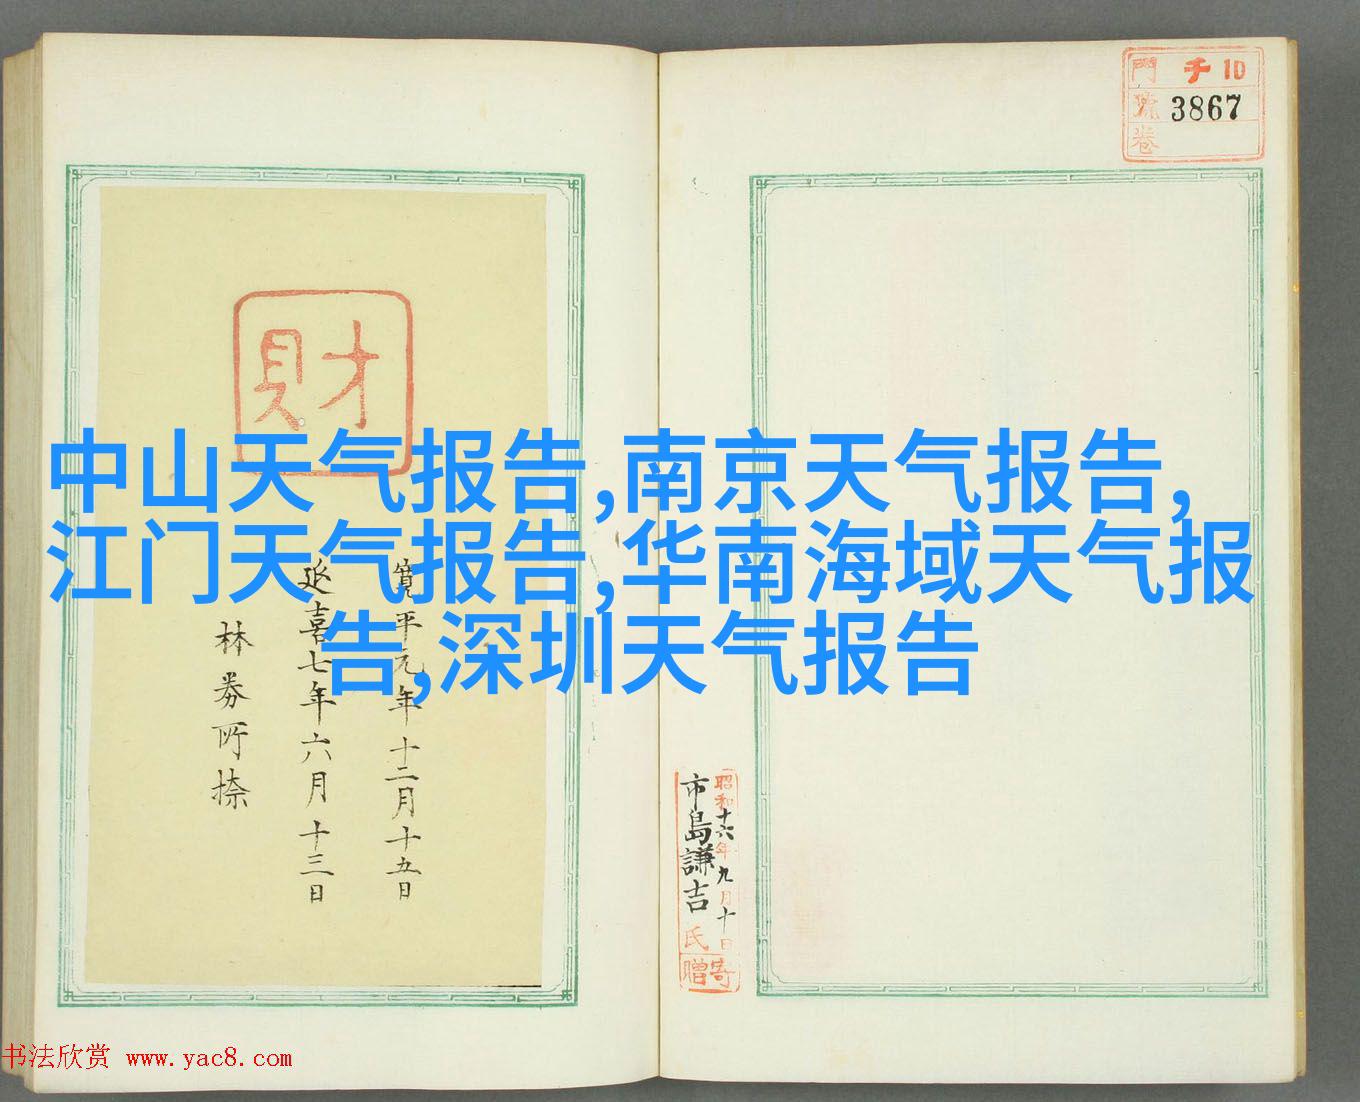 門 チ 10
號 3867
卷
財
中山天气报告,南京天气报告,
江门天气报告,华南海域天气报
告,深圳天气报告
寛平元年十二月十五日
延喜七年六月十三日
林
昭和十六年九月十日
市島謙吉氏
寄贈
书法欣赏 www.yac8.com